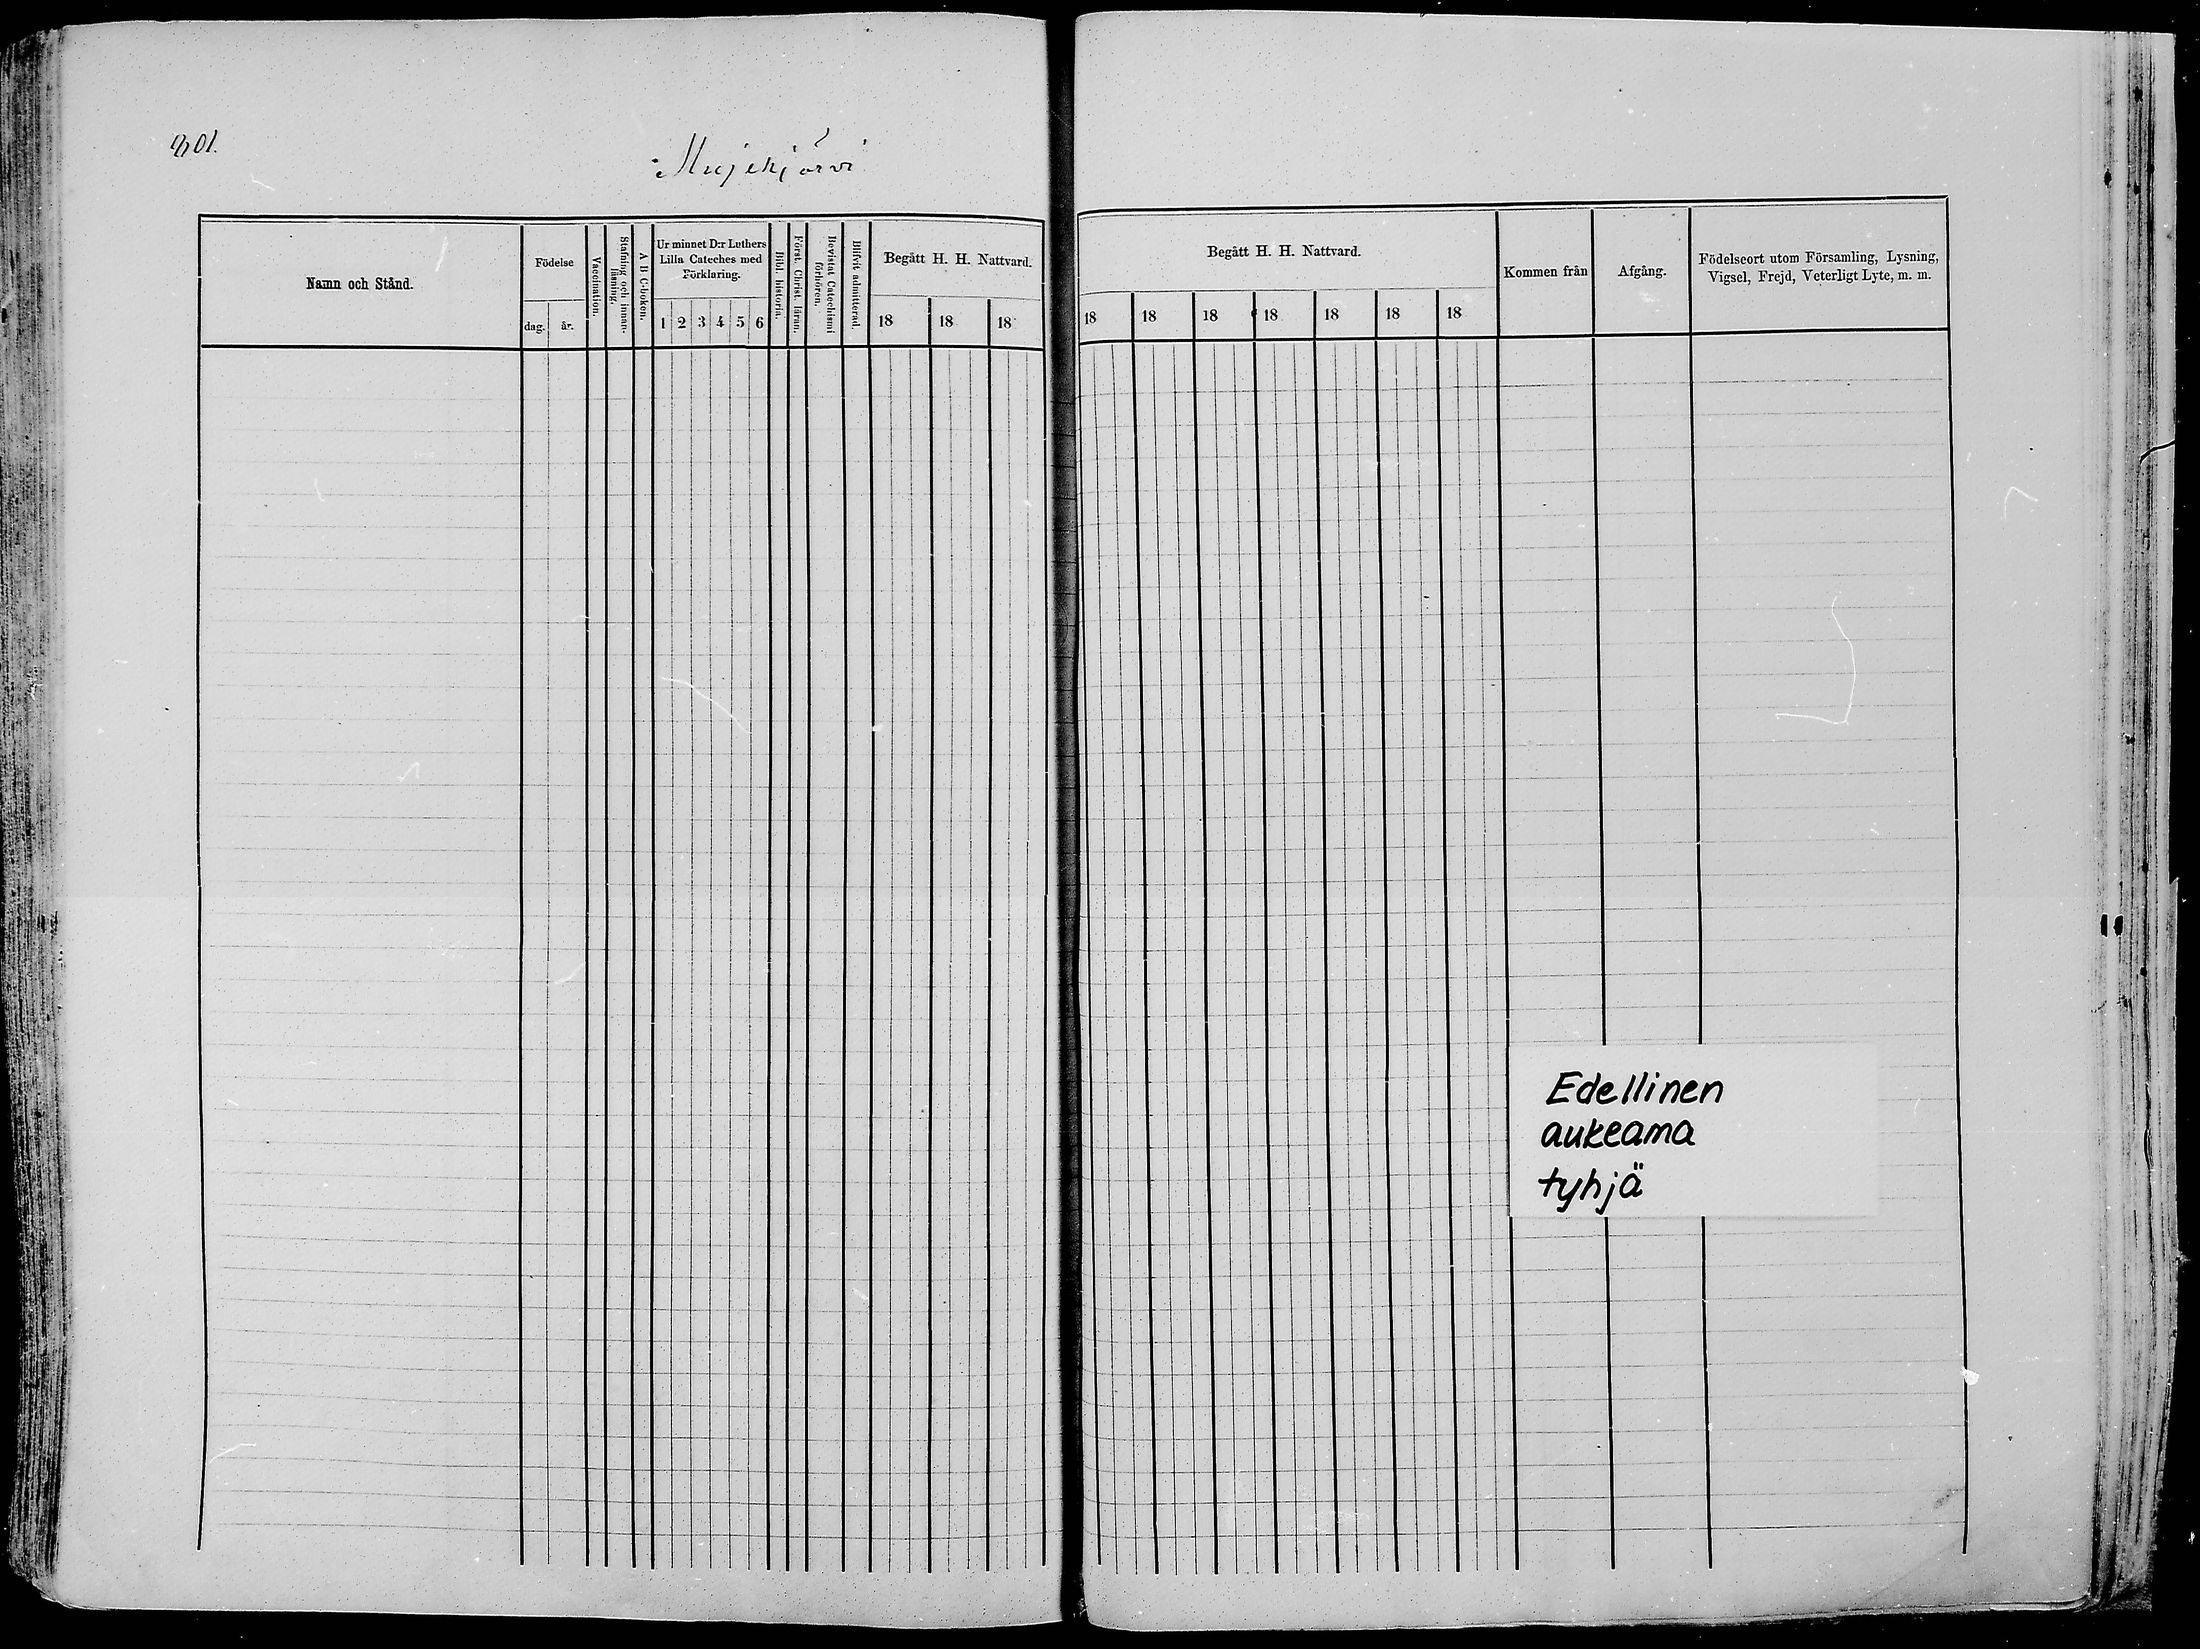 801.
Mujejärvi
Namn och Stånd.
Födelse
dag. år.
Vaccination.
Stafning och innan-
läsning.
A B C-boken.
Ur minnet D:r Luthers
Lilla Cateches med
Förklaring.
1 2 3 4 5 6
Bibl. historia.
Först. Christ. läran.
Bevistat Catechismi
förhören.
Blifvit admitterad.
Begått H. H. Nattvard.
18 18 18
Begått H. H. Nattvard.
18 18 18 18 18 18 18
Kommen från
Afgång.
Födelseort utom Församling, Lysning,
Vigsel, Frejd, Veterligt Lyte, m. m.
Edellinen
aukeama
tyhjä